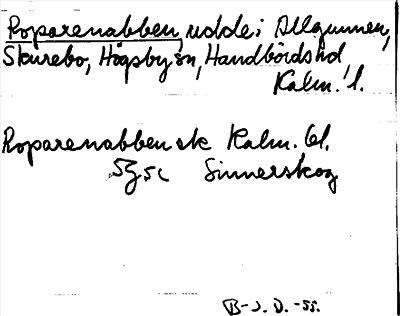 Roparenabben, udde i Allgunnen,
Skurebo, Högsby sn, Handbörds hd
Kalm. l.
Roparenabben ek Kalm. bl.
5g 5c Sinnerskog
B-J. D.-55.